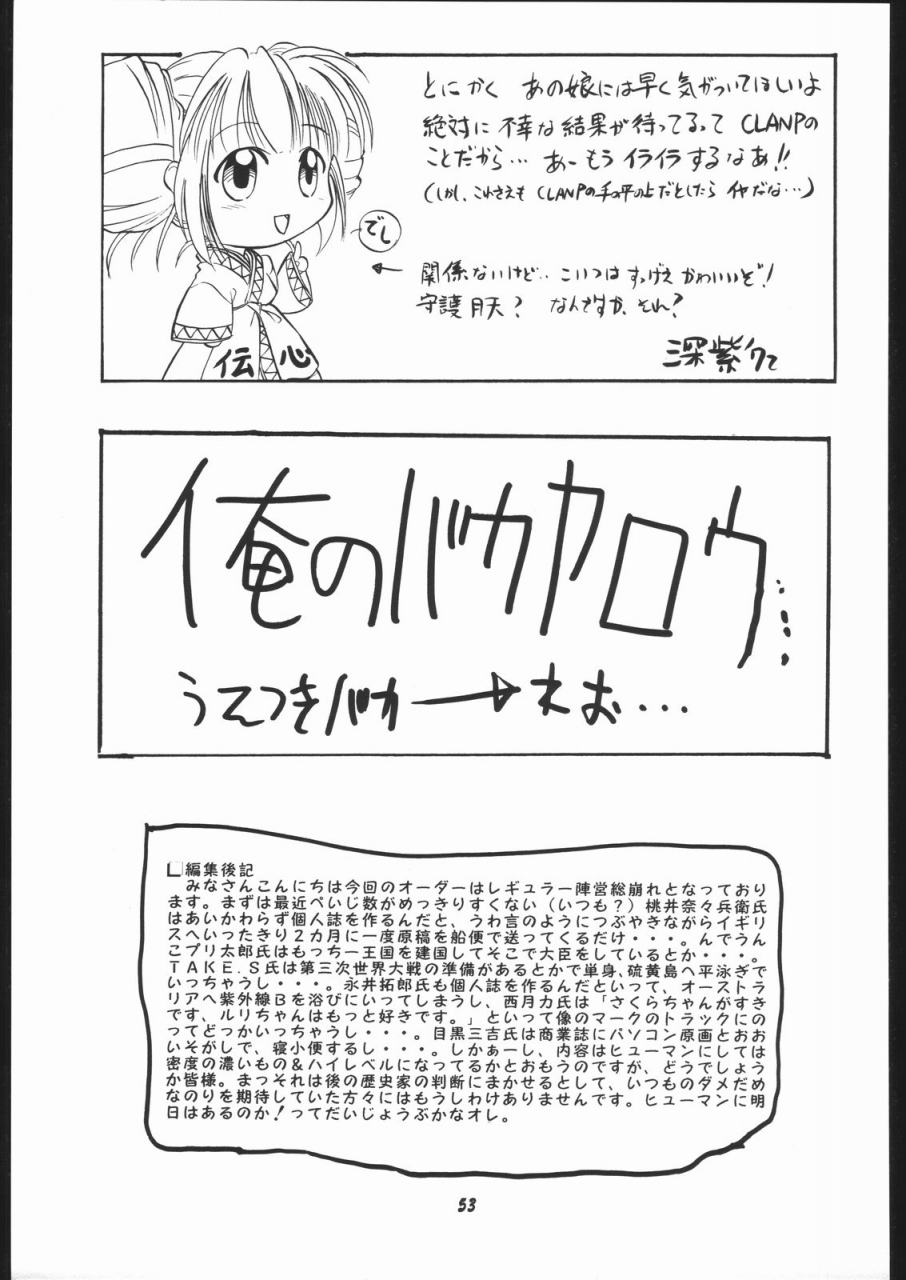 とにかく あの娘には早く気がついてほしいよ
絶対に 不幸な結果が待ってるって CLANPの
ことだから… あーもう イライラするなあ!!
(しかし、これさえも CLANPの手の平の上だとしたら イヤだな…)
でし
←
関係ないけど‥ こいつは すっげえ かわいいぞ!
守護月天? なんですか、それ?
伝心
深紫
俺のバカヤロウ…
うえつきバカ→ ネお…
□編集後記
みなさんこんにちは今回のオーダーはレギュラー陣営総崩れとなっており
ます。まずは最近ぺいじ数がめっきりすくない(いつも?)桃井奈々兵衛氏
はあいかわらず個人誌を作るんだと、うわ言のようにつぶやきながらイギリ
スへいったきり2カ月に一度原稿を船便で送ってくるだけ・・・。んでうん
こプリ太郎氏はもっちー王国を建国してそこで大臣をしているとか・・・。
TAKE.S氏は第三次世界大戦の準備があるとかで単身、硫黄島へ平泳ぎで
いっちゃうし・・・。永井拓郎氏も個人誌を作るんだといって、オーストラ
リアへ紫外線Bを浴びにいってしまうし、西月力氏は「さくらちゃんがすき
です、ルリちゃんはもっと好きです。」といって像のマークのトラックにの
ってどっかいっちゃうし・・・。目黒三吉氏は商業誌にパソコン原画とおお
いそがしで、寝小便するし・・・。しかぁーし、内容はヒューマンにしては
密度の濃いもの&ハイレベルになってるかとおもうのですが、どうでしょう
か皆様。まっそれは後の歴史家の判断にまかせるとして、いつものダメだめ
なのりを期待していた方々にはもうしわけありませんです。ヒューマンに明
日はあるのか!ってだいじょうぶかなオレ。
53